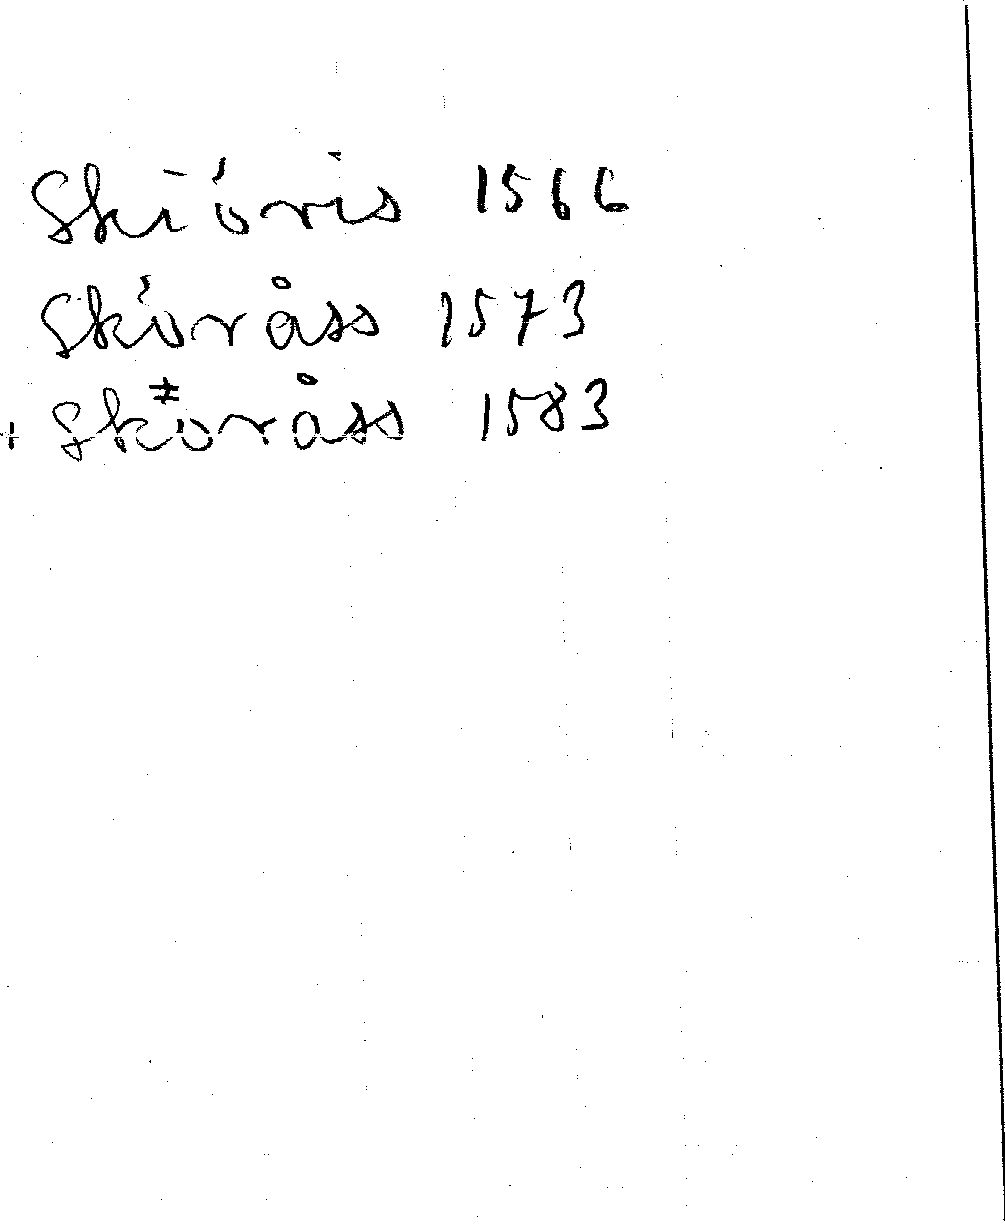 Skióris 1566
Skóråss 1573
+ Sköråss 1583